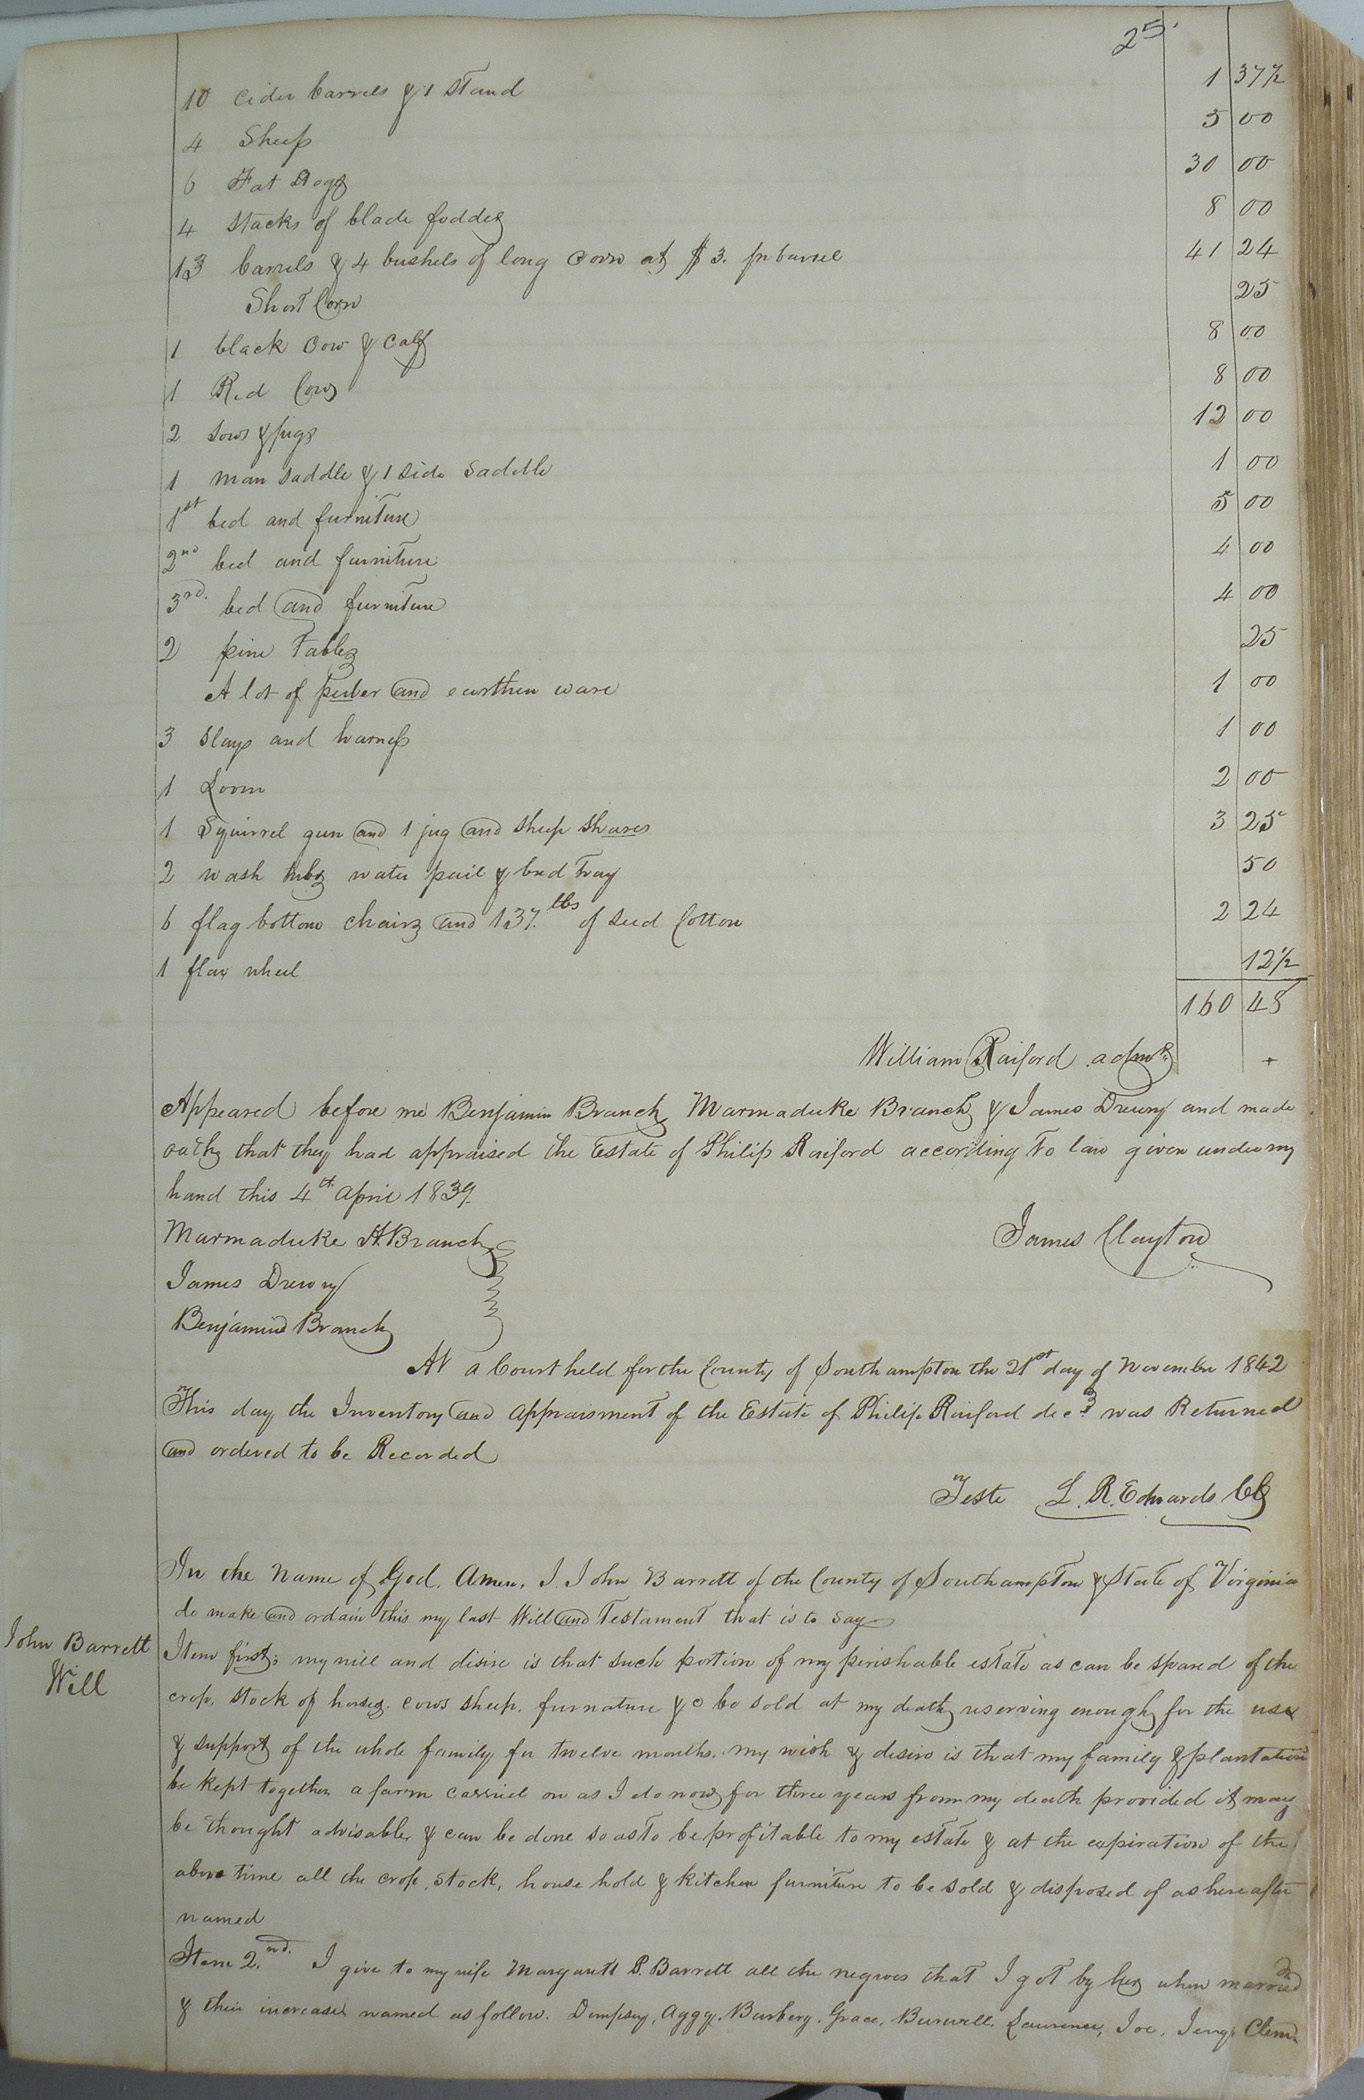 25.
10 cider barrels & 1 stand 1 37½
4 Sheep 5 00
6 Fat Hogs 30 00
4 stacks of blade fodder 8 00
13 barrels & 4 bushels of long corn at $3. pr barrel 41 24
Short Corn 25
1 black cow & calf 8 00
1 Red Cow 8 00
2 sows & pigs 12 00
1 man saddle & 1 side saddle 1 00
1st bed and furniture 5 00
2nd bed and furniture 4 00
3rd. bed and furniture 4 00
2 pine Tables 25
A lot of puter and earthen ware 1 00
3 slays and harness 1 00
1 Loom 2 00
1 Squirrel gun and 1 jug and sheep shares 3 25
2 wash tubs water pail & bread Tray 50
6 flag bottom chairs and 137. lbs of seed Cotton 2 24
1 flax wheel 12½
160 48
William Raiford admr.
Appeared before me Benjamin Branch Marmaduke Branch & James Drewry and made
oath that they had appraised the Estate of Philip Raiford according to law given under my
hand this 4th April 1839.
Marmaduke A. Branch James Clayton
James Drewry
Benjamin Branch
At a Court held for the County of Southampton the 21st day of November 1842
This day the Inventory and appraisment of the Estate of Philip Raiford decd was Returned
and ordered to be Recorded
Teste L. R. Edwards Clk
In the Name of God. Amen. I John Barrett of the County of Southampton & State of Virginia
do make and ordain this my last Will and Testament that is to say
John Barrett
Will
Item first; my will and disire is that such portion of my perishable estate as can be spared of the
crop. stock of horses. cows sheep. furnature &c be sold at my death reserving enough for the use
& support of the whole family for twelve months. my wish & desire is that my family & plantation
be kept together a farm carried on as I do now for three years from my death provided it may
be thought advisable & can be done so as to be profitable to my estate & at the expiration of the
above time all the crop, stock, house hold & kitchen furniture to be sold & disposed of as hereafter
named
Item 2.nd. I give to my wife Margarett P. Barrett all the negroes that I got by her when married
& their increase named as follow. Dempsey, Aggy. Barbery. Grace, Burwell. Lawrence, Joe. Jerry. Clem